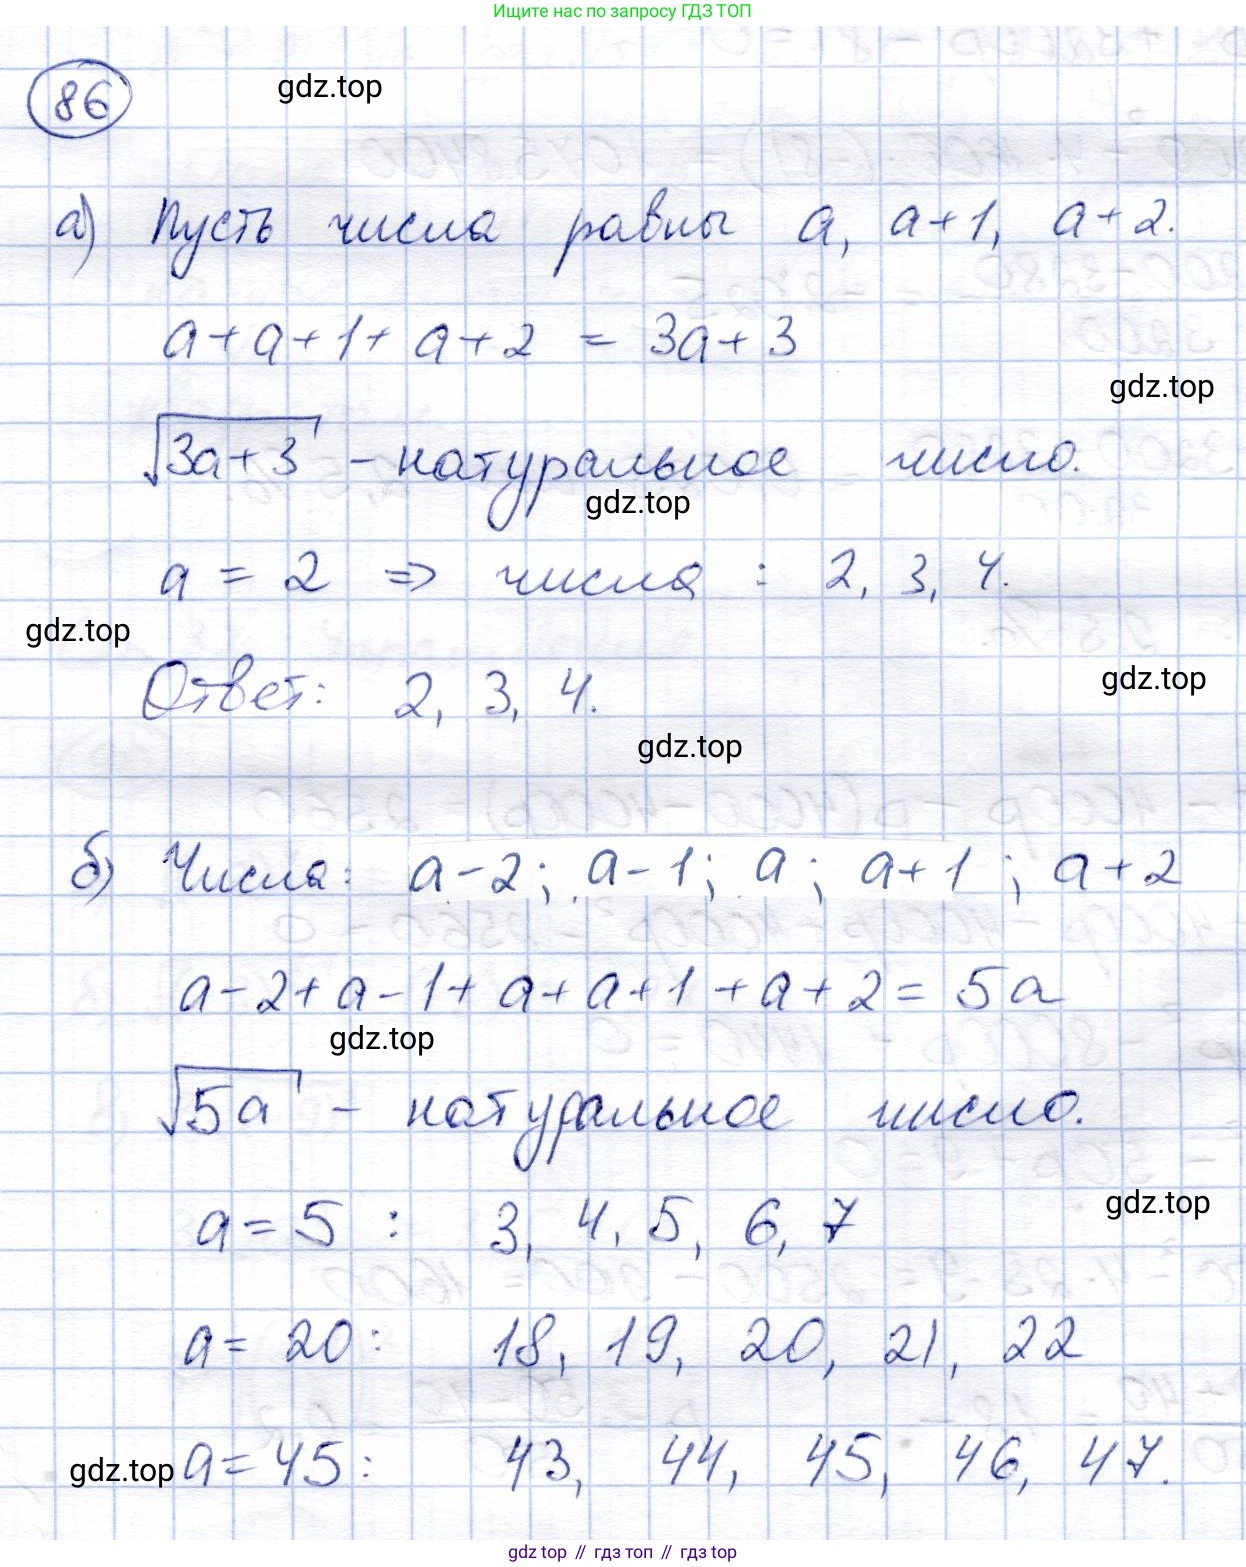 Ищите нас по запросу ГДЗ ТОП
86
gdz.top
а) Пусть числа равны a, a+1, a+2.
a+a+1+a+2 = 3a+3
gdz.top
√3a+3 - натуральное число.
gdz.top
a = 2 ⇒ числа : 2, 3, 4.
gdz.top
Ответ: 2, 3, 4.
gdz.top
gdz.top
б) Числа: a-2; a-1; a; a+1; a+2
a-2+a-1+a+a+1+a+2=5a
gdz.top
√5a - натуральное число.
gdz.top
a=5 : 3, 4, 5, 6, 7
a= 20: 18, 19, 20, 21, 22
gdz.top
a=45: 43, 44, 45, 46, 47.
gdz top // гдз топ // gdz top